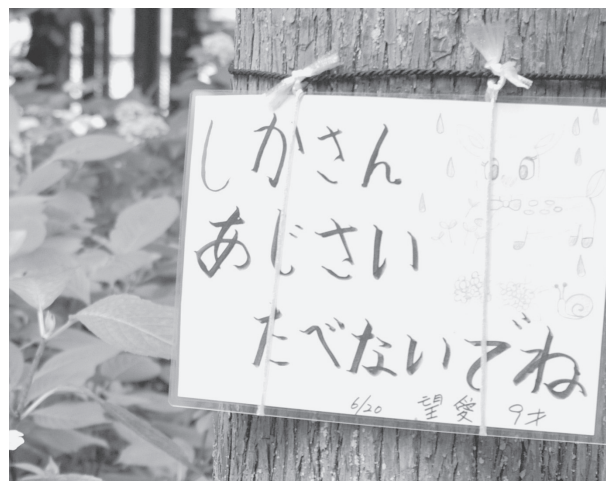 しかさん
あじさい
たべないでね
6/20 望愛 9才